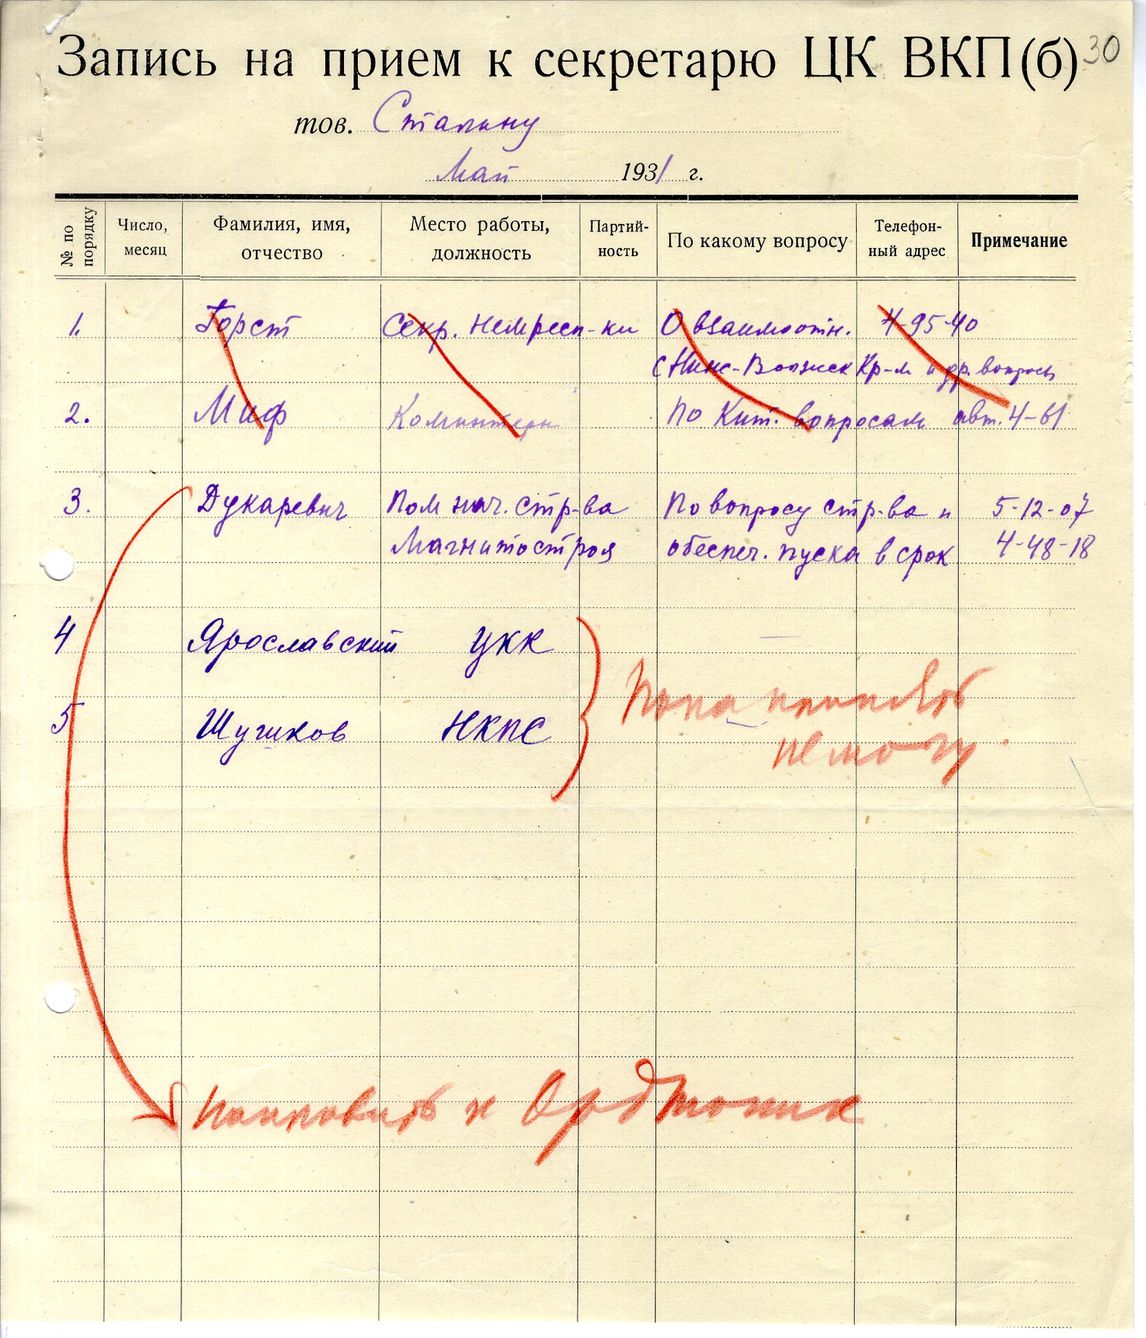 30
Запись на прием к секретарю ЦК ВКП(б)
тов. Сталину
Май 1931 г.
№ по порядку
Число, месяц
Фамилия, имя, отчество
Место работы, должность
Партий-ность
По какому вопросу
Телефон-ный адрес
Примечание
1. Горст Секр. Немресп-ки О взаимоотн. 4-95-40
с Ниж-Волжск Кр-м и др. вопросы
2. Миф Коминтерн По Кит. вопросам авт. 4-61
3. Дукаревич Пом нач. стр-ва По вопросу стр-ва и 5-12-07
Магнитостроя обеспеч. пуска в срок 4-48-18
4 Ярославский ЦКК
Пока принять
5 Шушков НКПС
не могу.
Направить к Орджоник